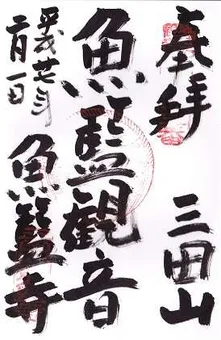 奉拝
三田山
魚籃観音
平成廿年
二月一日
魚籃寺